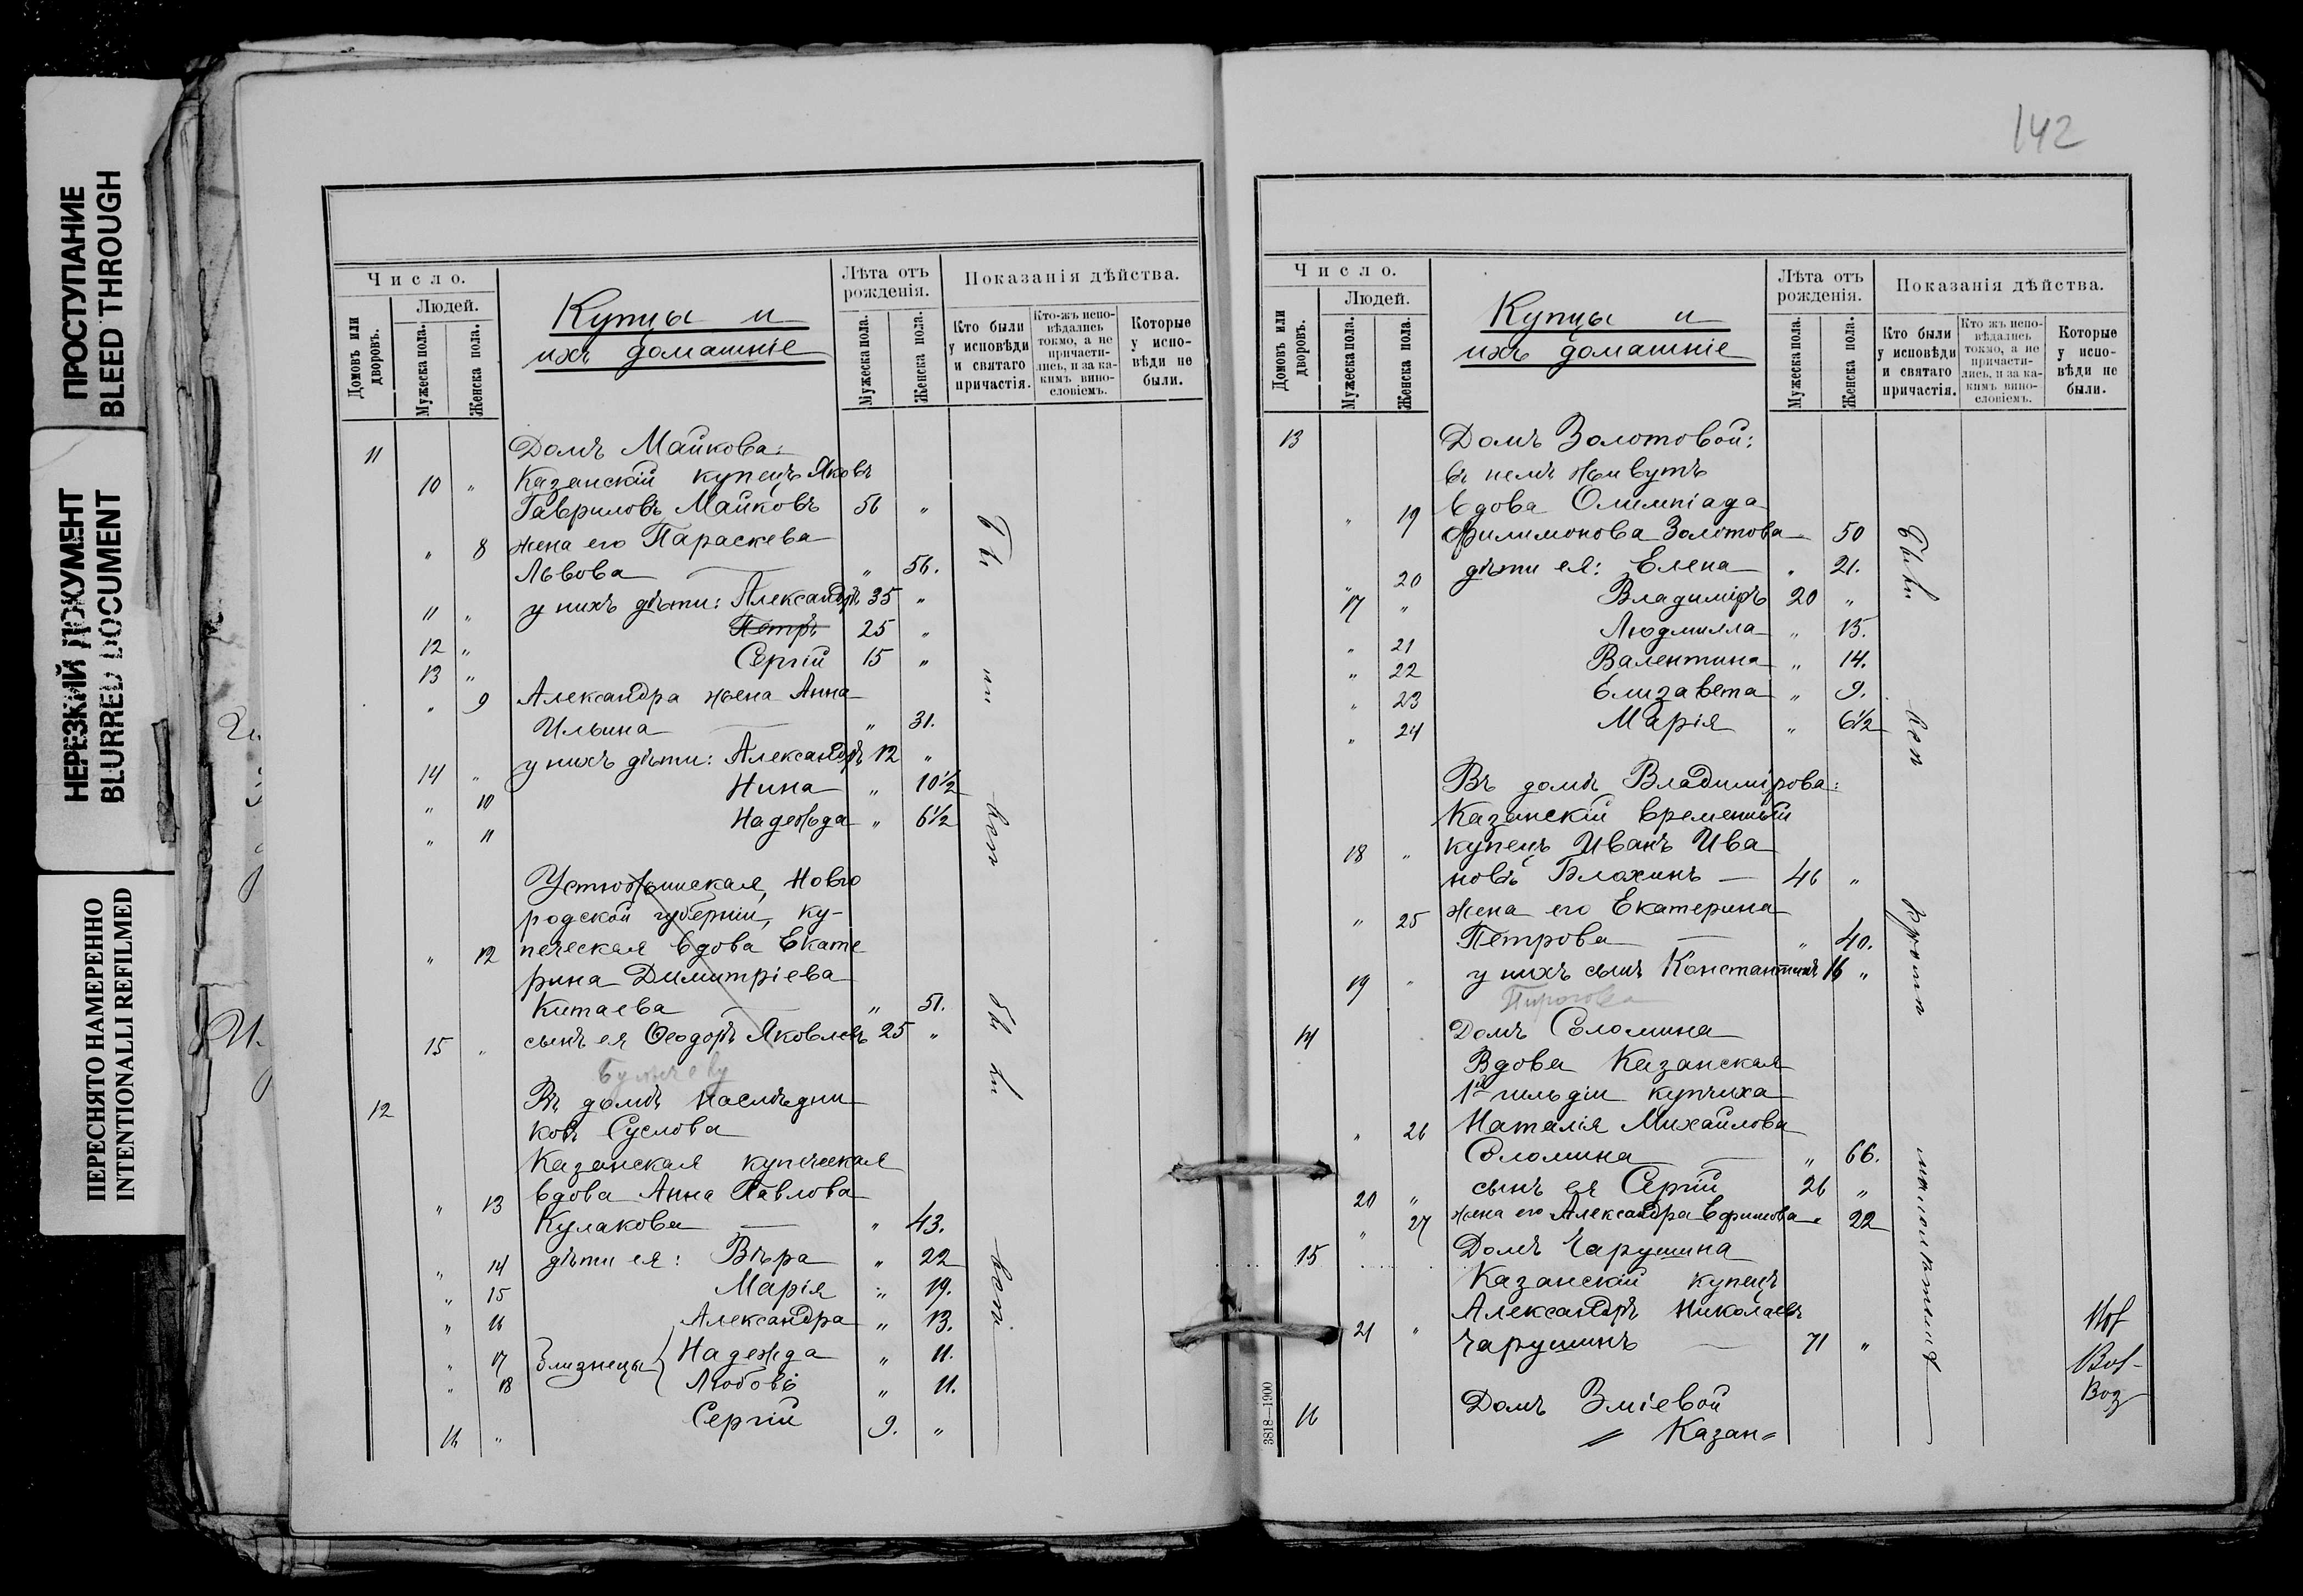 ПРОСТУПАНИЕ
BLEED THROUGH
НЕРЕЗКИЙ ДОКУМЕНТ
BLURRED DOCUMENT
ПЕРЕСНЯТО НАМЕРЕННО
INTENTIONALLI REFILMED
Число.
Людей.
Домовъ или дворовъ.
Мужеска пола.
Женска пола.
Купцы и
ихъ домашніе
Лѣта отъ рожденія.
Мужеска пола.
Женска пола.
Показанія дѣйства.
Кто были у исповѣди и святаго причастія.
Кто-жъ испо-вѣдались токмо, а не причасти-лись, и за ка-кимъ вино-словіемъ.
Которые у испо-вѣди не были.
11 Домъ Майкова:
10 " Казанскій купецъ Яковъ
Гавриловъ Майковъ 56 "
" 8 жена его Параскева
Львова — " 56.
11 " у нихъ дѣти: Александръ 35 "
12 " Петръ 25 "
13 " Сергій 15 "
" 9 Александра жена Анна
Ильина — " 31.
14 " у нихъ дѣти: Александръ 12 "
" 10 Нина " 10½
" 11 Надежда " 6½
Устюжинская, Новго
родской губерніи, ку-
" 12 печеская вдова Екате
рина Димитріева
Китаева " 51.
15 " сынъ ея Ѳеодоръ Яковлевъ 25 "
12 Въ домѣ наслѣдни
ковъ Суслова
Казанская купеческая
" 13 вдова Анна Павлова
Кулакова — " 43.
" 14 дѣти ея: Вѣра " 22
" 15 Марія " 19.
" 16 Александра " 13.
" 17 близнецы { Надежда " 11.
" 18 Любовь " 11.
16 " Сергій 9. "
Были
всѣ
были
всѣ
142
Число.
Людей.
Домовъ или дворовъ.
Мужеска пола.
Женска пола.
Купцы и
ихъ домашніе
Лѣта отъ рожденія.
Мужеска пола.
Женска пола.
Показанія дѣйства.
Кто были у исповѣди и святаго причастія.
Кто жъ испо-вѣдались токмо, а не причасти-лись, и за ка-кимъ вино-словіемъ.
Которые у испо-вѣди не были.
13 Домъ Золотовой:
въ немъ живутъ
" 19 вдова Олимпіада
Филимонова Золотова 50
" 20 дѣти ея: Елена " 21.
17 " Владиміръ 20 "
" 21 Людмилла " 15.
" 22 Валентина " 14.
" 23 Елизавета " 9.
" 24 Марія " 6½
Въ домѣ Владимірова:
Казанскій временный
18 " купецъ Иванъ Ива
новъ Блохинъ — 46 "
" 25 жена его Екатерина
Петрова — " 40.
19 " у нихъ сынъ Константинъ 16 "
Пирогова
14 Домъ Соломина
Вдова Казанская
1й гильдіи купчиха
" 26 Наталія Михайлова
Соломина — " 66.
20 " сынъ ея Сергій 26 "
" 27 жена его Александра Ефимова " 22
15 Домъ Чарушина
Казанскій купецъ
Александръ Николаевъ
21 " Чарушинъ — 71 "
16 Домъ Зміевой
Казан=
Были
всѣ
кромѣ
3818—1900